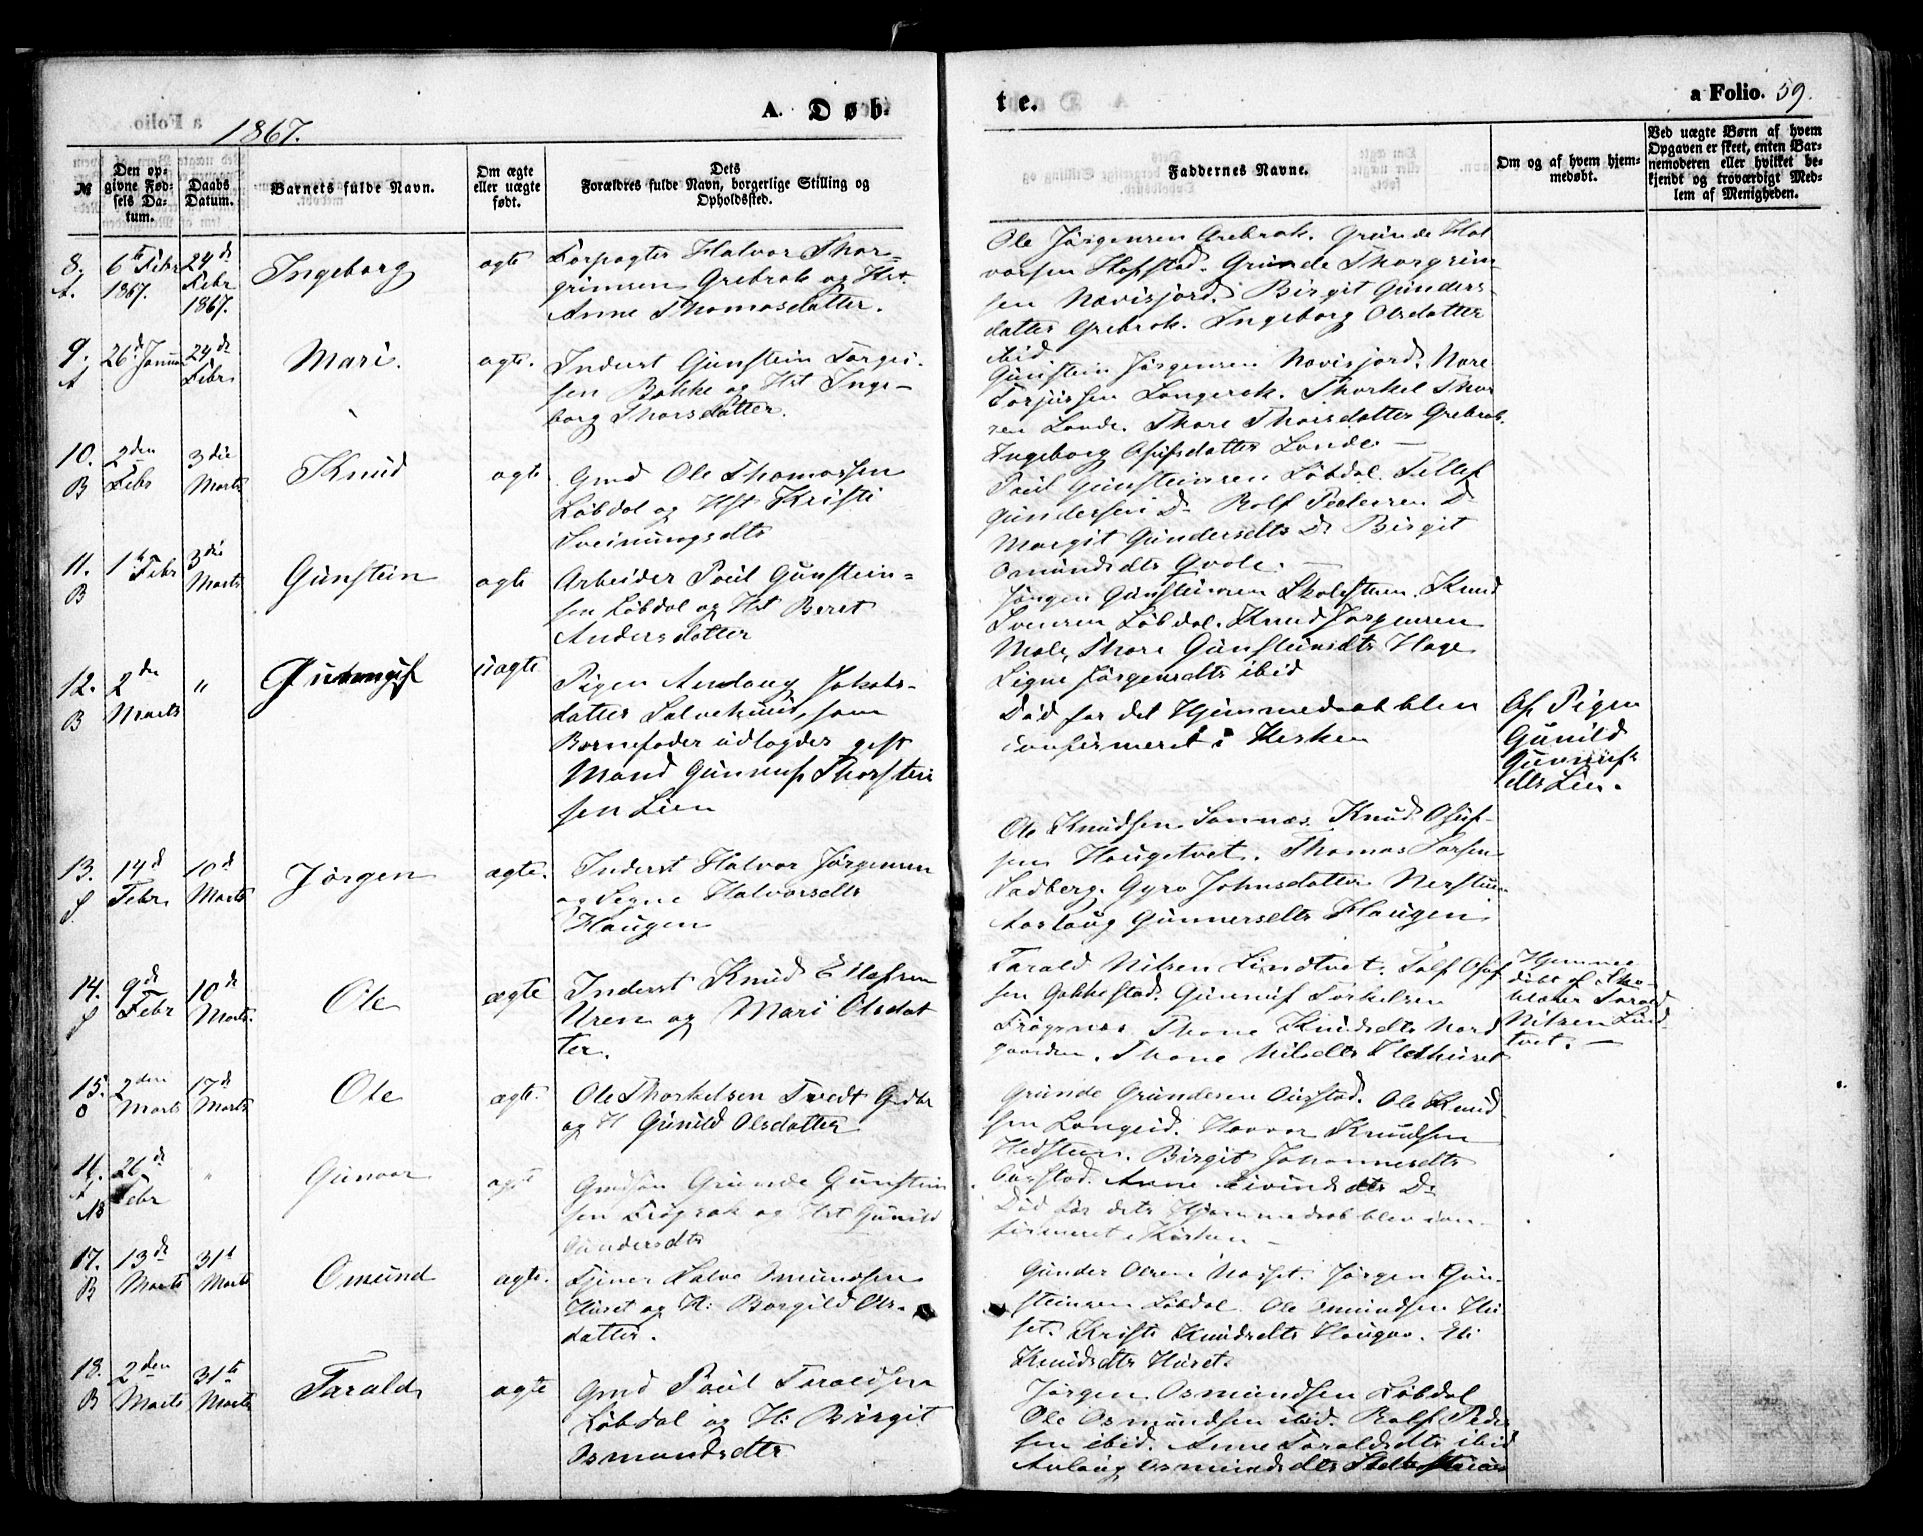 1867.
A. Døb-
te.
a Folio. 59.
№
Den opgivne Fødsels Datum.
Daabs Datum.
Barnets fulde Navn.
Om ægte eller uægte født.
Dets Forældres fulde Navn, borgerlige Stilling og Opholdssted.
Faddernes Navne.
Om og af hvem hjemmedøbt.
Ved uægte Børn af hvem Opgaven er skeet, enten Barnemoderen eller hvilket bekjendt og troværdigt Medlem af Menigheden.
8. A.
6te Febr 1867.
24de Febr 1867.
Ingeborg
ægte
Forpagter Halvor Thor-
grimsen Grebrok og Hst.
Anne Thomasdatter.
Ole Jørgensen Grebrok. Grunde Hal
vorsen Hofstad. Grunde Thorgrim-
sen Navisjord. Birgit Gunders-
datter Grebrok. Ingeborg Olsdatter
ibid
9. A
26de Januar
24de Febr
Mari.
ægte.
Inderst Gunstein Torgei-
sen Bakke og Hst Inge-
borg Thorsdatter.
Gunstein Jørgensen Navisjord.
Torjussen Langerak. Thorkel Thor
sen Lande. Thore Thorsdatter Grebrok.
Ingeborg Lande. —
10. B
2den Febr
3die Marts
Knud
ægte
Gmd Ole Thomassen
Løbdal og Hst Kristi
Sveinungsdtr
Poul Gunsteinsen Løbdal. Tellef
Gundersen Do Rolf Pedersen Do
Margit Gundersdtr Do Birgit
Osmundsdtr Qvale. —
11. B
1te Febr
3die Marts
Gunstein
ægte
Arbeider Poul Gunstein-
sen Løbdal og Hst Beret
Andersdatter
Jørgen Gunsteinsen Knud
Svensen Løbdal. Knud Jørgensen
Mole, Thore Gunsteinsdtr Hage
Signe Jørgensdtr ibid
12. B
2de Marts
"
uægte
Pigen Aadaug Jakobs-
datter som
Barnefader udlagdes gift
Mand Gunnuf Thorstein
sen Lien
Død før det Hjemmedaab blev
confirmeret i Kirken
Af Pigen
Gunild
Gunnufs
dtr Lien.
13. S
14de Febr
10de Marts
Jørgen
ægte.
Inderst Halvor Jørgensen
og Signe Halvorsdtr
Haugen
Ole Knudsen Sannæs. Knud
sen Haugetvet. Thomas Larsen
Sadberg. Gyro Johnsdatter
Aaslaug Gunnersdtr Haugen
14. S
9de Febr
10de Marts.
Ole
ægte
Inderst Knud Ellefsen
Uren og Mari Olsdat
ter.
Tarald Nilsen Lindtvet.
sen Gakkestad. Gunnuf Torkelsen
Frøysnæs. Thone Knudsdtr Nord
gaarden. Thone Nilsdtr
Hjemme
døbt af
Tarald
Nilsen Lind
tvet. —
15. O
2den Marts
17de Marts
Ole
ægte.
Ole Thorkelsen Tvedt
og H Gunild Olsdatter
Grunde Grundesen Ougstad. Ole Knud
sen Langeid. Knudsen
Hedsteen. Birgit Johannesdtr
Ougstad. Anne Eivindsdtr Do
16.
26de Febr
"
Gunvor
ægte
Grunde Gunstein
sen Frøysok og Hst Gunild
Gundersdtr
Død før dets Hjemmedaab blev con-
firmeret i Kirken —
17. B
13de Marts
31te Marts
Osmund
ægte.
Tjener Salve Osmundsen
Huset og H: Borgild Ols-
datter.
Gunder Olsen Jørgen Gun-
steinsen Løbdal Ole Osmundsen Hu
set. Kristi Knudsdtr
Knudsdtr Huset.
18. B
2den Marts
31te Marts
Tarald
ægte
Gmd Poul Taraldsen
Løbdal og H: Birgit
Osmundsdtr
Jørgen Osmundsen Løbdal
Ole Osmundsen ibid. Rolf Peder
sen ibid. Anne Taraldsdtr ibid
Aslaug Osmundsdtr